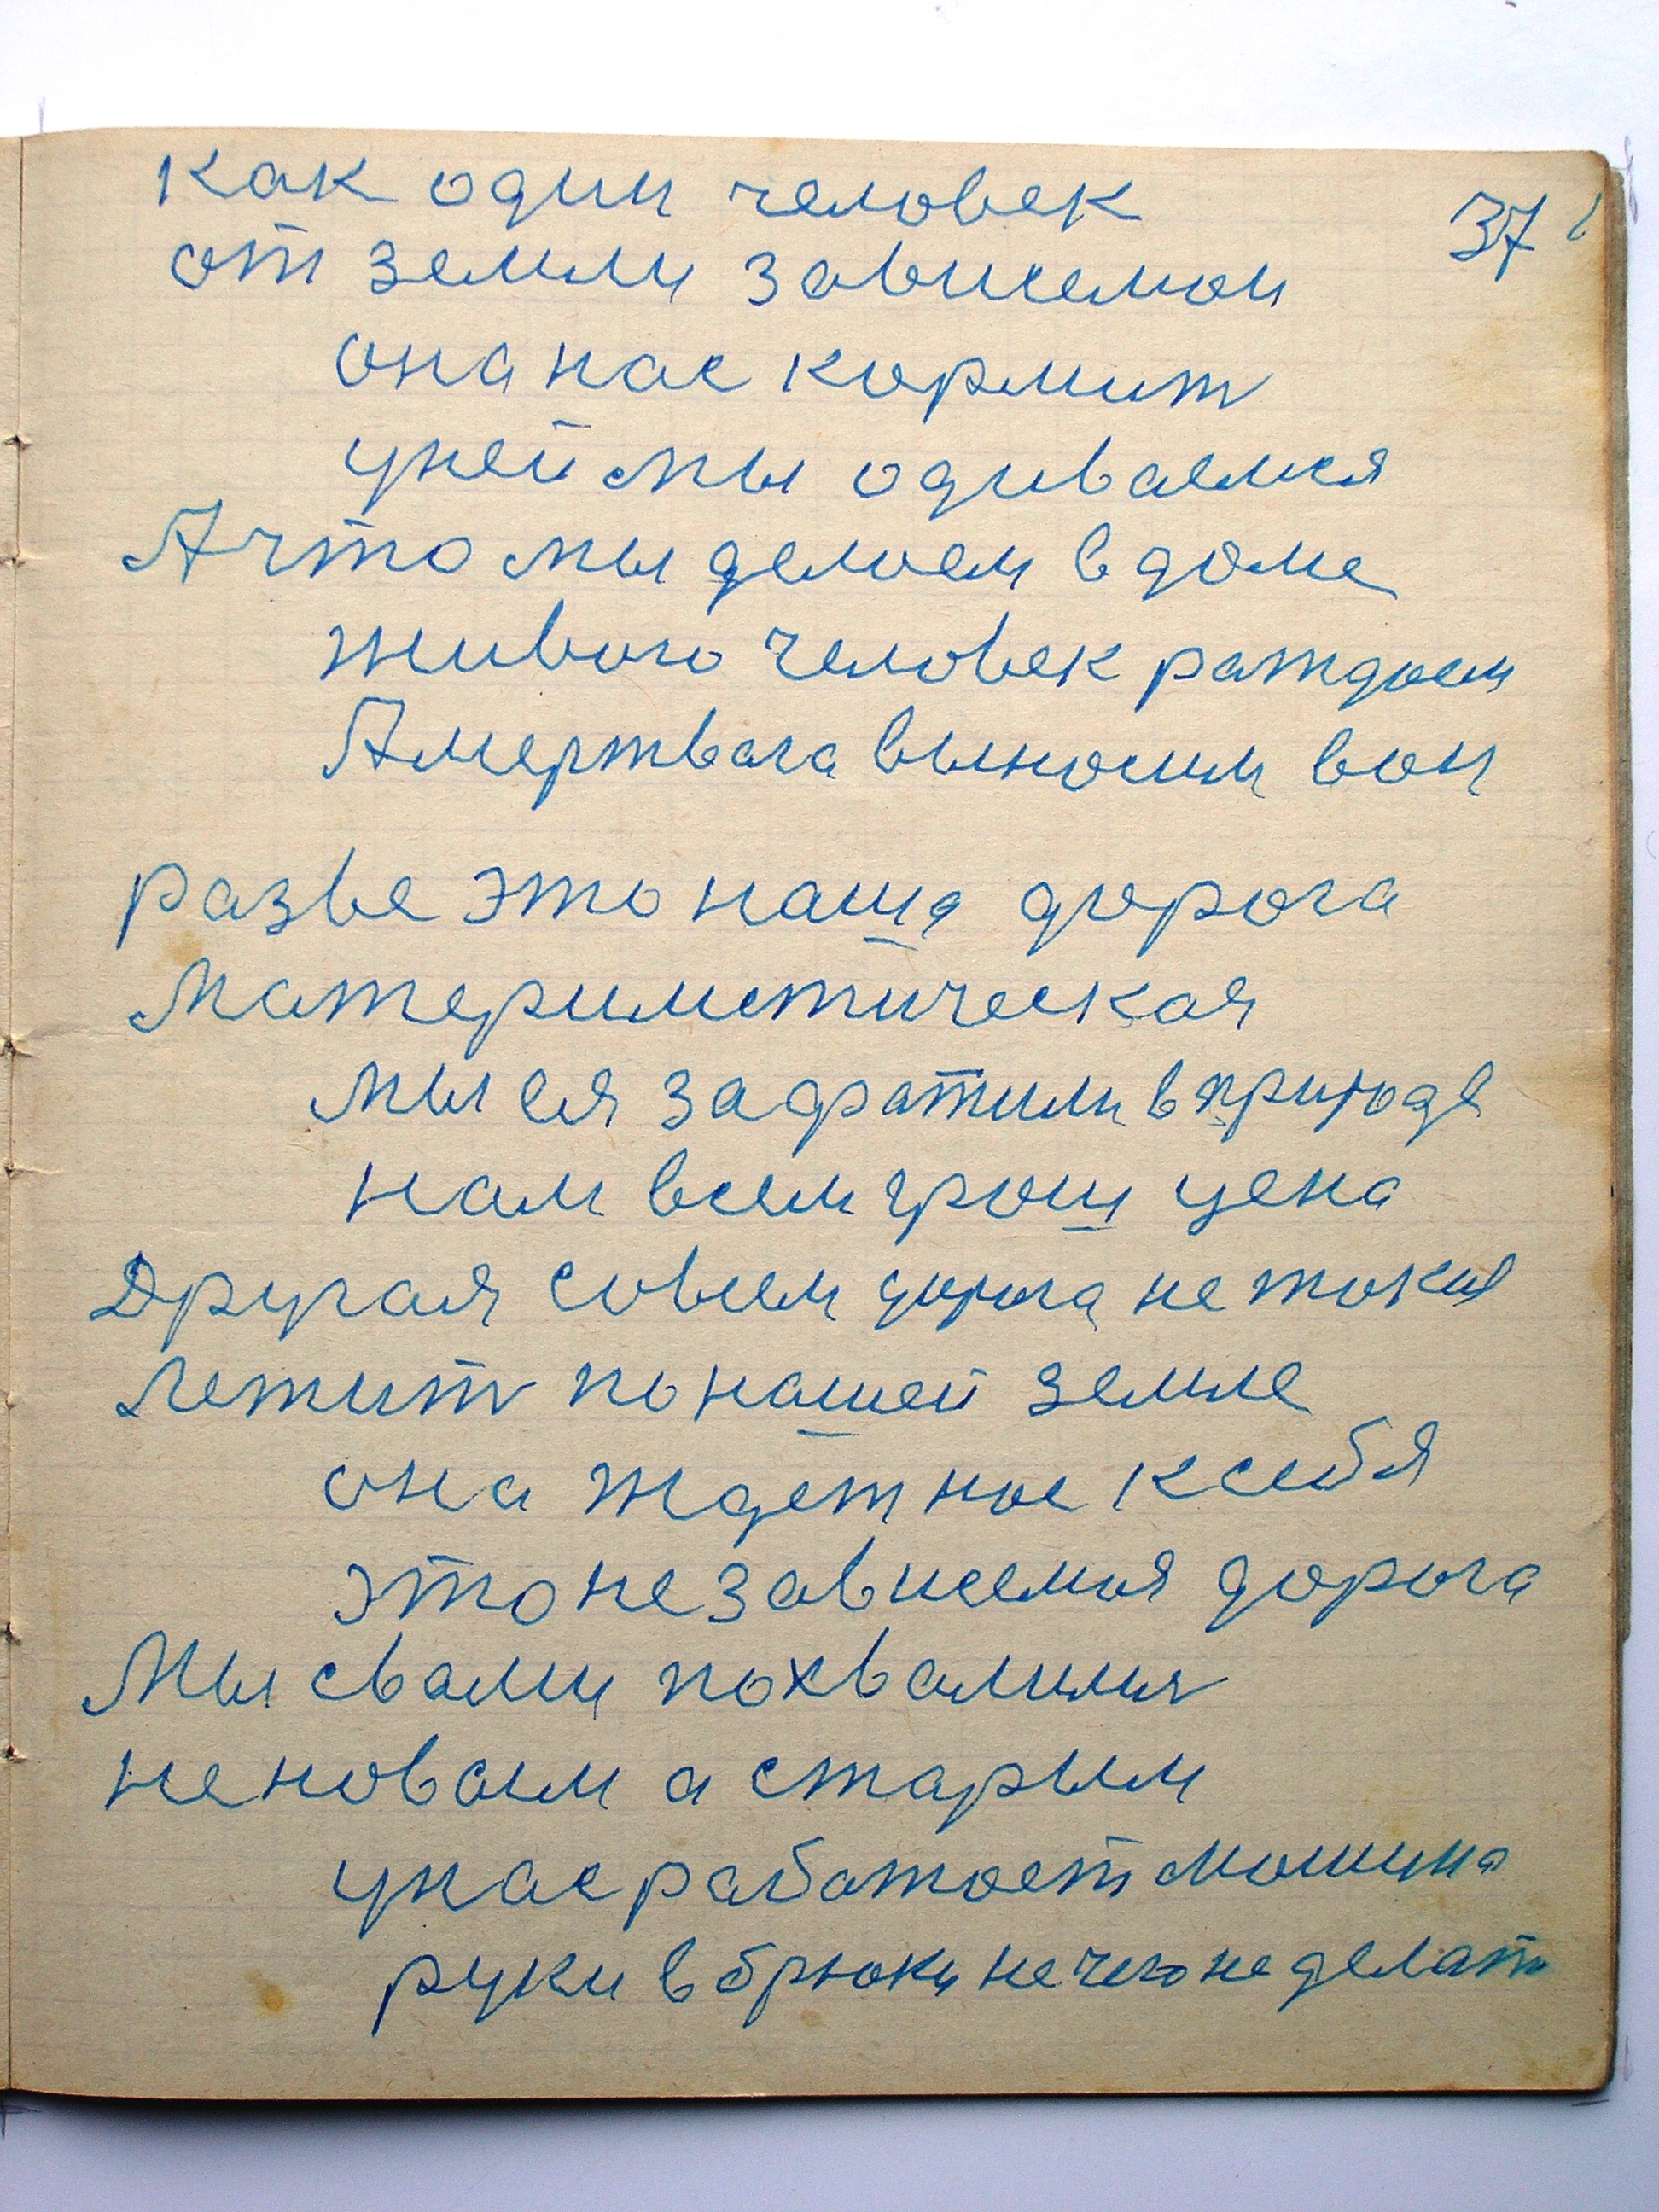 как один человек
37
от земли зависемои
она нас кормит
уней мы одиваемся
А что мы делоем в доме
живого человек раждоем
А мертвага выносим вон
разве это наша дорога
Материлистическая
мы ея зафатили в природе
нам всем грош цена
Другая совсем дорога не токия
Летит по нашей земле
она ждет нос к себя
это не зависемоя дорога
Мы свами похвалимся
не новаим а старым
унас работоет мошина
руки в брюки не чего не делат